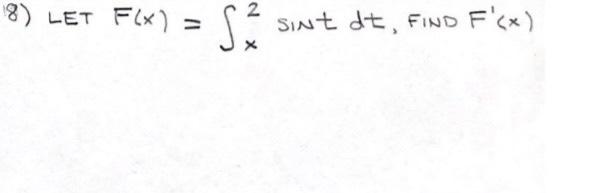 18) LET F(x) = ∫ₓ² sint dt, FIND F'(x)